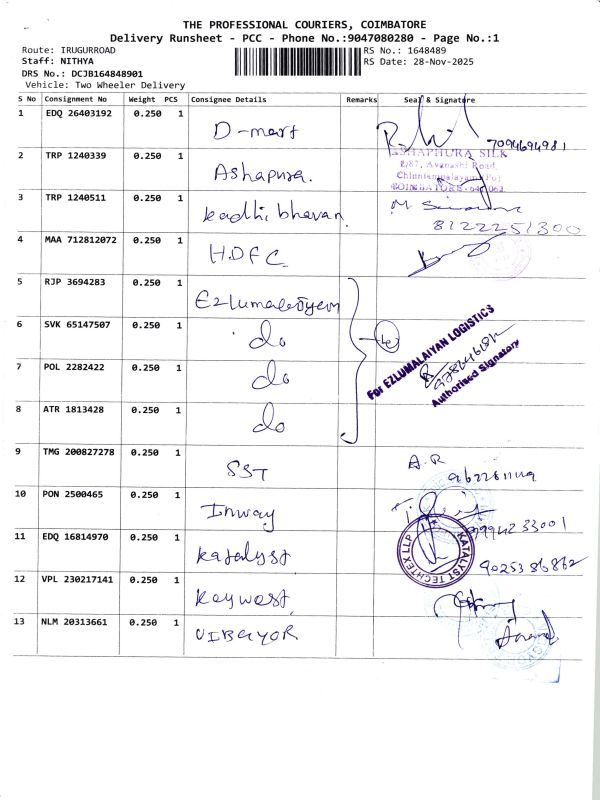 THE PROFESSIONAL COURIERS, COIMBATORE
Delivery Runsheet - PCC - Phone No.:9047080280 - Page No.:1
Route: IRUGURROAD
RS No.: 1648489
Staff: NITHYA
RS Date: 28-Nov-2025
DRS No.: DCJB164848901
Vehicle: Two Wheeler Delivery
S No Consignment No Weight PCS Consignee Details Remarks Seal & Signature
1 EDQ 26403192 0.250 1 D-mart 7094694981
2 TRP 1240339 0.250 1 Ashapura.
ASHAPHURA SILK
8/87, Avanashi Road,
Chinniampalayam (Po)
COIMBATORE - 641 062.
3 TRP 1240511 0.250 1 kadhi bhavan
8122251300
4 MAA 712812072 0.250 1 H.D.F.C.
5 RJP 3694283 0.250 1
6 SVK 65147507 0.250 1 do
7 POL 2282422 0.250 1 do
8 ATR 1813428 0.250 1 do
For EZLUMALAIYAN LOGISTICS
Authorised Signatory
9 TMG 200827278 0.250 1 SST A.R
10 PON 2500465 0.250 1 Inway 9994233001
11 EDQ 16814970 0.250 1 Katalyst 9025386862
KATALYST TECHTEX LLP
12 VPL 230217141 0.250 1 Keywest.
13 NLM 20313661 0.250 1 VIBGYOR Anand